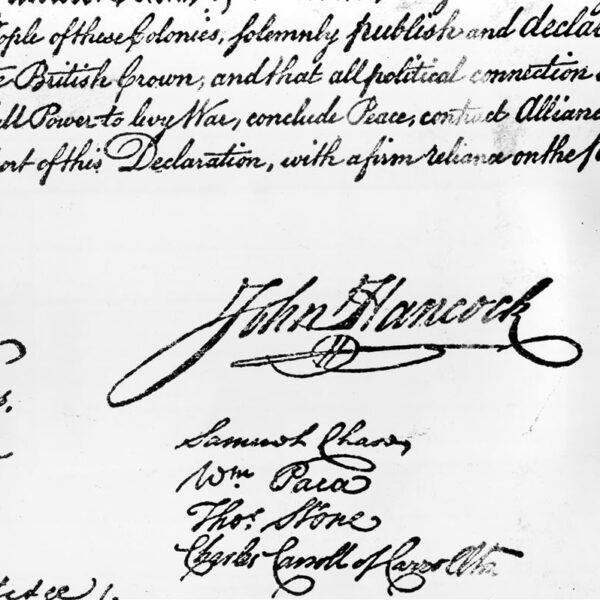 ople of these Colonies, solemnly publish and decla
British Crown, and that all political connection
all Power to levy War, conclude Peace, contract Allian
ort of this Declaration, with a firm reliance on the
John Hancock
Samuel Chase,
Wm. Paca
Thos. Stone
Charles Carroll of Carrollton